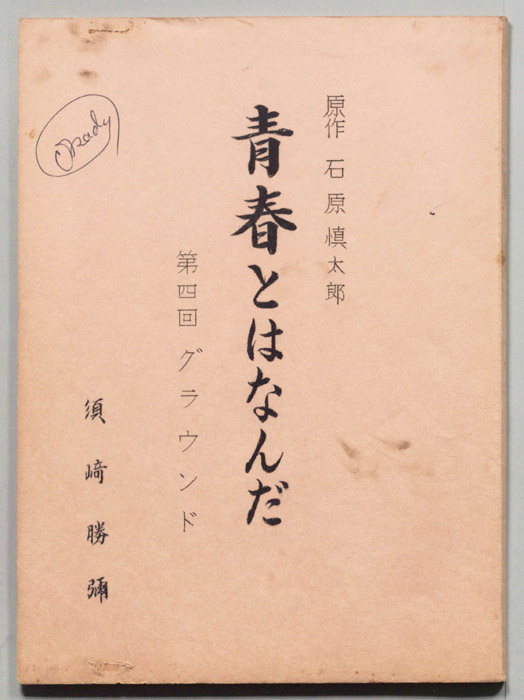 原作 石原慎太郎
青春とはなんだ
第四回 グラウンド
須﨑勝彌